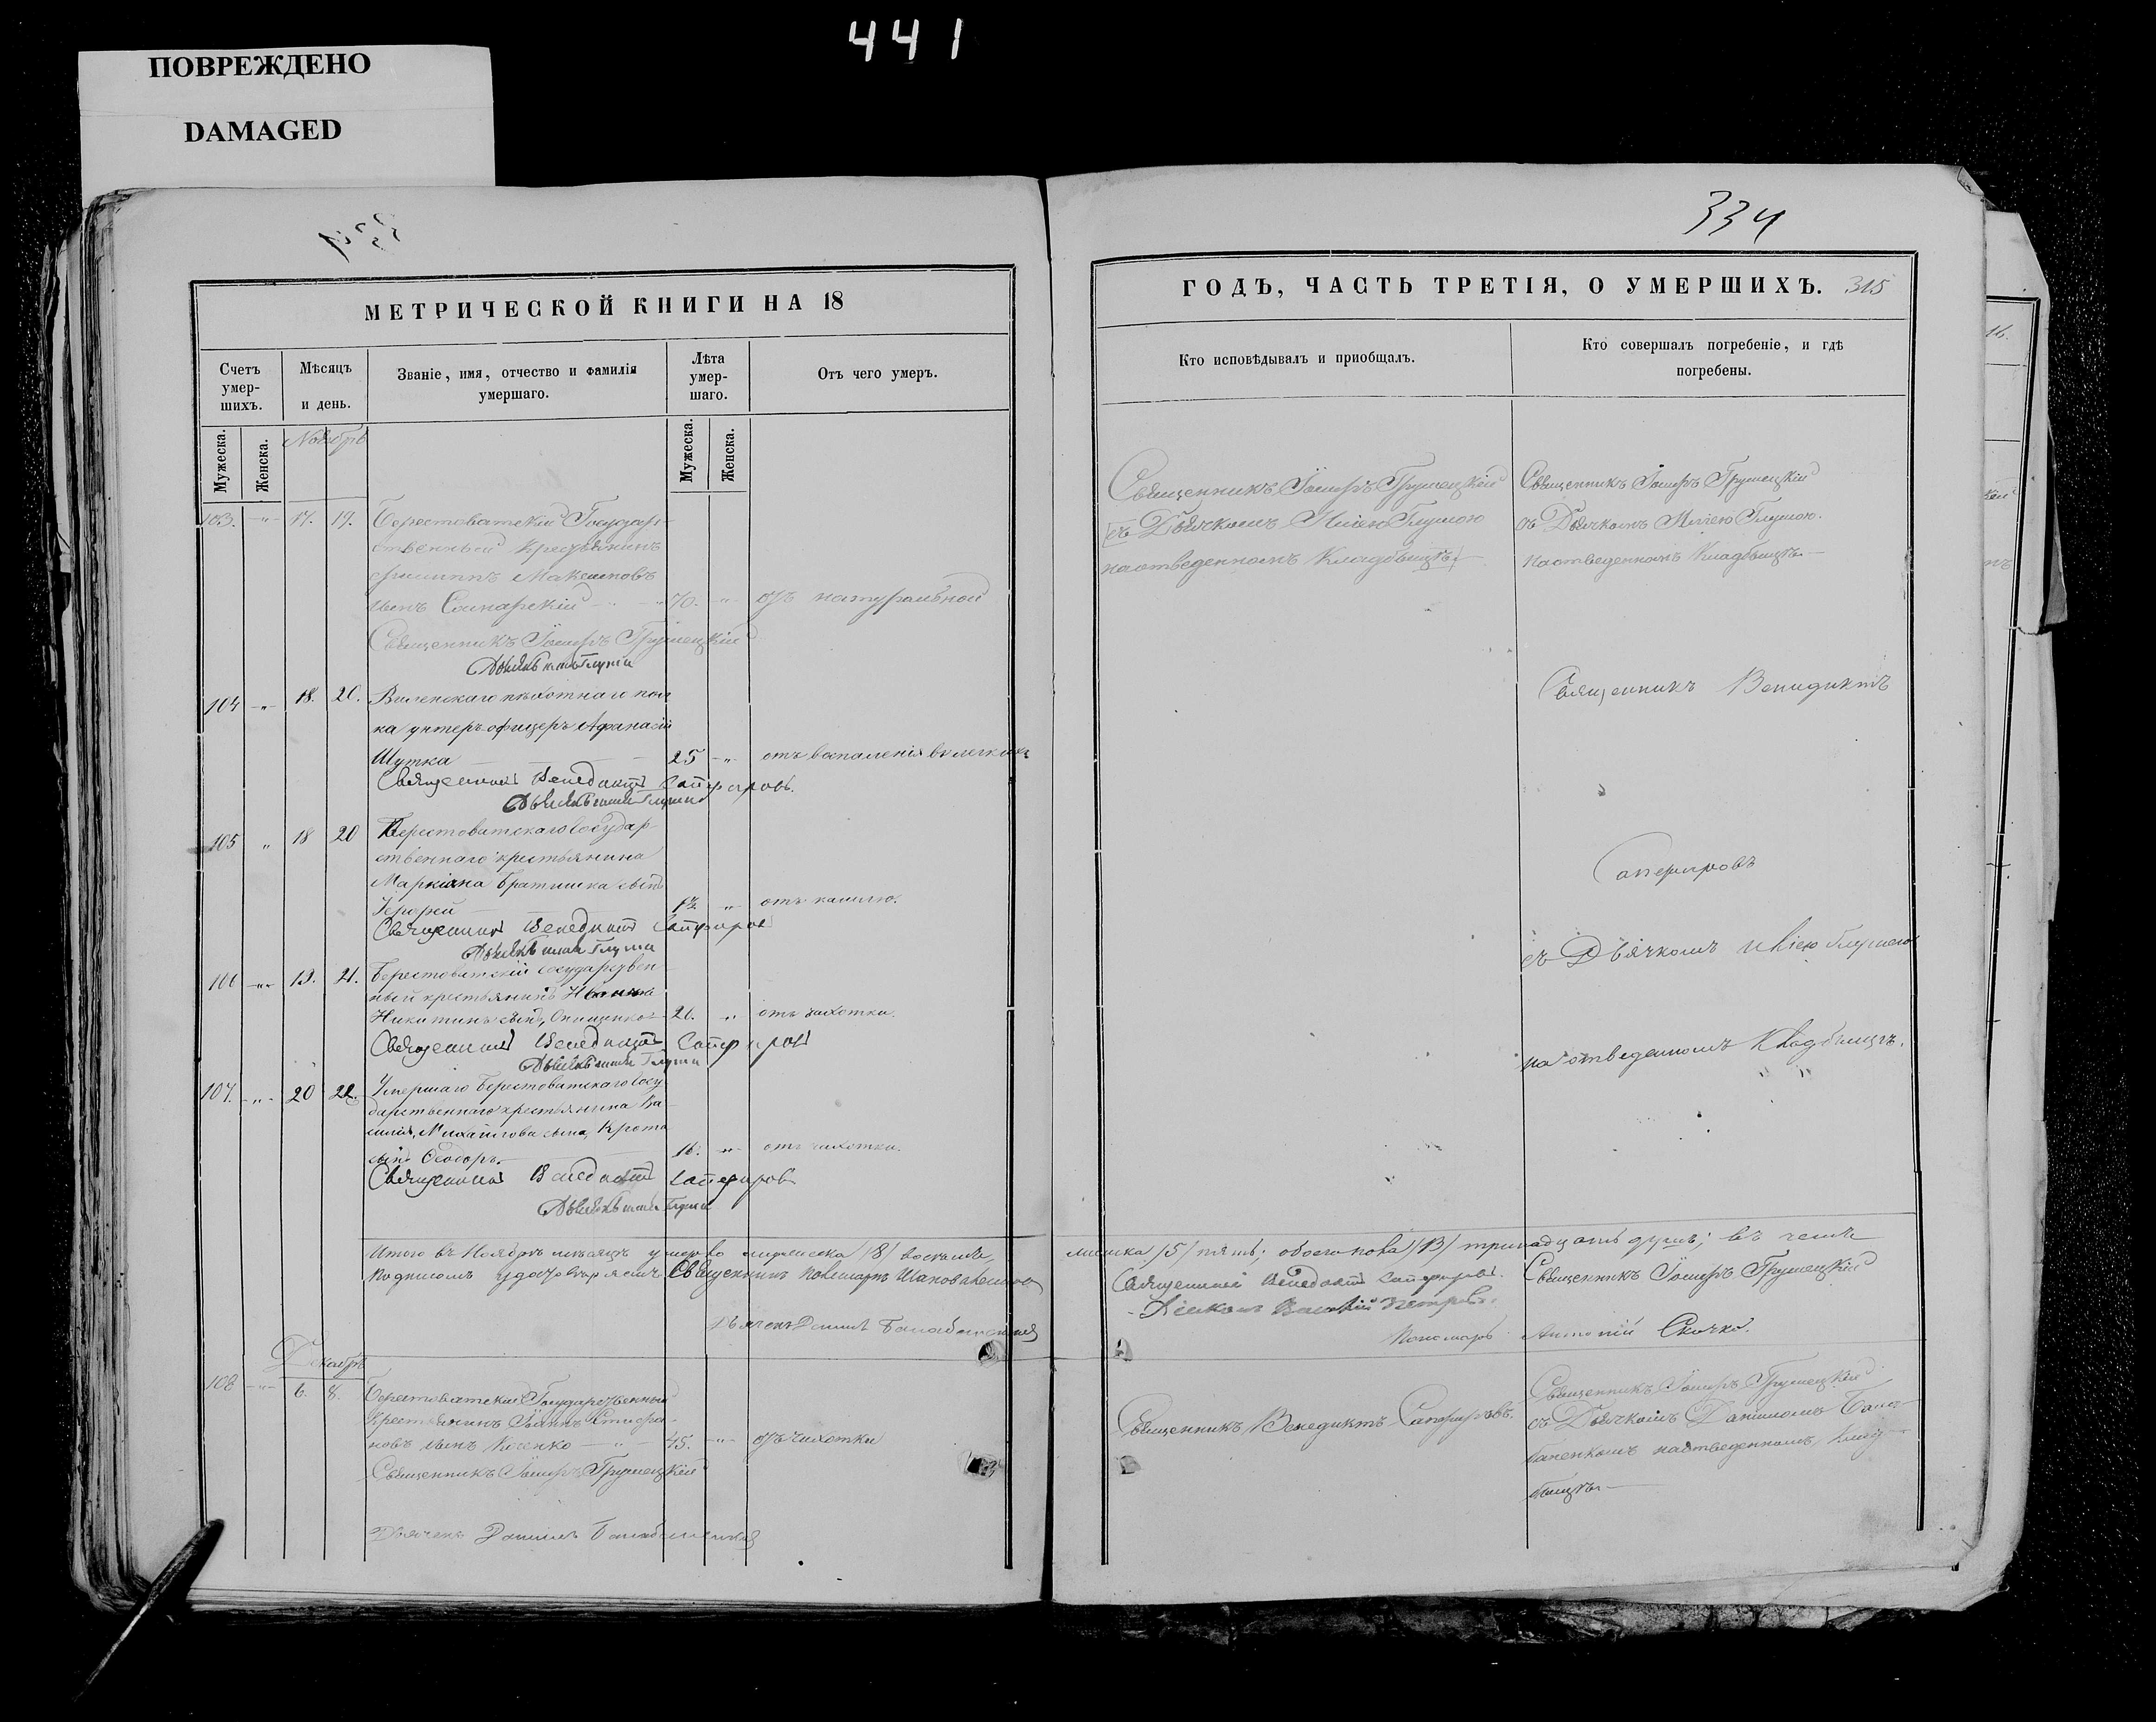 441
ПОВРЕЖДЕНО
DAMAGED
334
МЕТРИЧЕСКОЙ КНИГИ НА 18
Счетъ умер-шихъ.
Мѣсяцъ и день.
Званіе, имя, отчество и фамилія умершаго.
Лѣта умер-шаго.
Отъ чего умеръ.
Мужеска.
Женска.
Мужеска.
Женска.
Ноябрь
103. -"- 17. 19. Берестоватскій Государ-
ственный Крестьянинъ
Филиппъ Максимовъ
сынъ - " - 70. - " - отъ натуральной
Священникъ Іосифъ Грушецкій
Дьячекъ Илія Глушко
104 -"- 18. 20. Виленскаго пѣхотнаго пол
ка унтеръ офицеръ Афанасій
Шутка 25 -"- отъ воспаленія въ легкихъ
Священникъ Венедиктъ Сапфировъ.
Дьячекъ Илія Глушко
105 " 18 20 Берестоватскаго Государ-
ственнаго крестьянина
Маркіяна Братишка сынъ
" отъ кашлю.
Священникъ Венедиктъ Сапфировъ
Дьячекъ Илія Глушко
106 -"- 19. 21. Берестоватскій государствен
ный крестьянинъ
Никитинъ сынъ, Онищенко 20. " отъ чахотки.
Священникъ Венедиктъ Сапфировъ
Дьячекъ Илія Глушко
107. -"- 20 22. Умершаго Берестоватскаго Госу
дарственнаго крестьянина Ва-
силія, Михайлова сына, Крота
сынъ Ѳеодоръ. 16. -"- отъ чахотки.
Священникъ Венедиктъ Сапфировъ
Дьячекъ Илія Глушко
Итого въ Ноябрѣ мѣсяцѣ умерло мужеска /8/ восемь,
подписомъ удостовѣряемъ Священникъ
Дьячекъ Даніилъ Балабаненко
Декабрь
108 -"- 6. 8. Берестоватскій Государственный
Крестьянинъ Іоаннъ Стефа-
новъ сынъ - " - 45. -"- отъ чахотки
Священникъ Іосифъ Грушецкій
Дьячекъ Даніилъ Балабаненко
ГОДЪ, ЧАСТЬ ТРЕТІЯ, О УМЕРШИХЪ. 315
Кто исповѣдывалъ и приобщалъ.
Кто совершалъ погребеніе, и гдѣ погребены.
Священникъ Іосифъ Грушецкій
съ Дьячкомъ Иліею Глушкою
на отведенномъ Кладбищѣ
Священникъ Іосифъ Грушецкій
съ Дьячкомъ Иліею Глушкою.
на отведенномъ Кладбищѣ.
Священникъ Венидиктъ
Сапфировъ
съ Дьячкомъ Иліею Глушкою
на отведенномъ Кладбищѣ.
женска /5/ пять; обоего пола /13/ тринадцать душъ; въ чемъ
Священникъ Венедиктъ Сапфировъ. Священникъ Іосифъ Грушецкій
Діяконъ Василій Петровъ.
Пономарь Антоній Скочко.
Священникъ Венедиктъ Сапфировъ.
Священникъ Іосифъ Грушецкій
съ Дьячкомъ Даніиломъ Бала-
баненкомъ на отведенномъ Клад-
бищѣ.